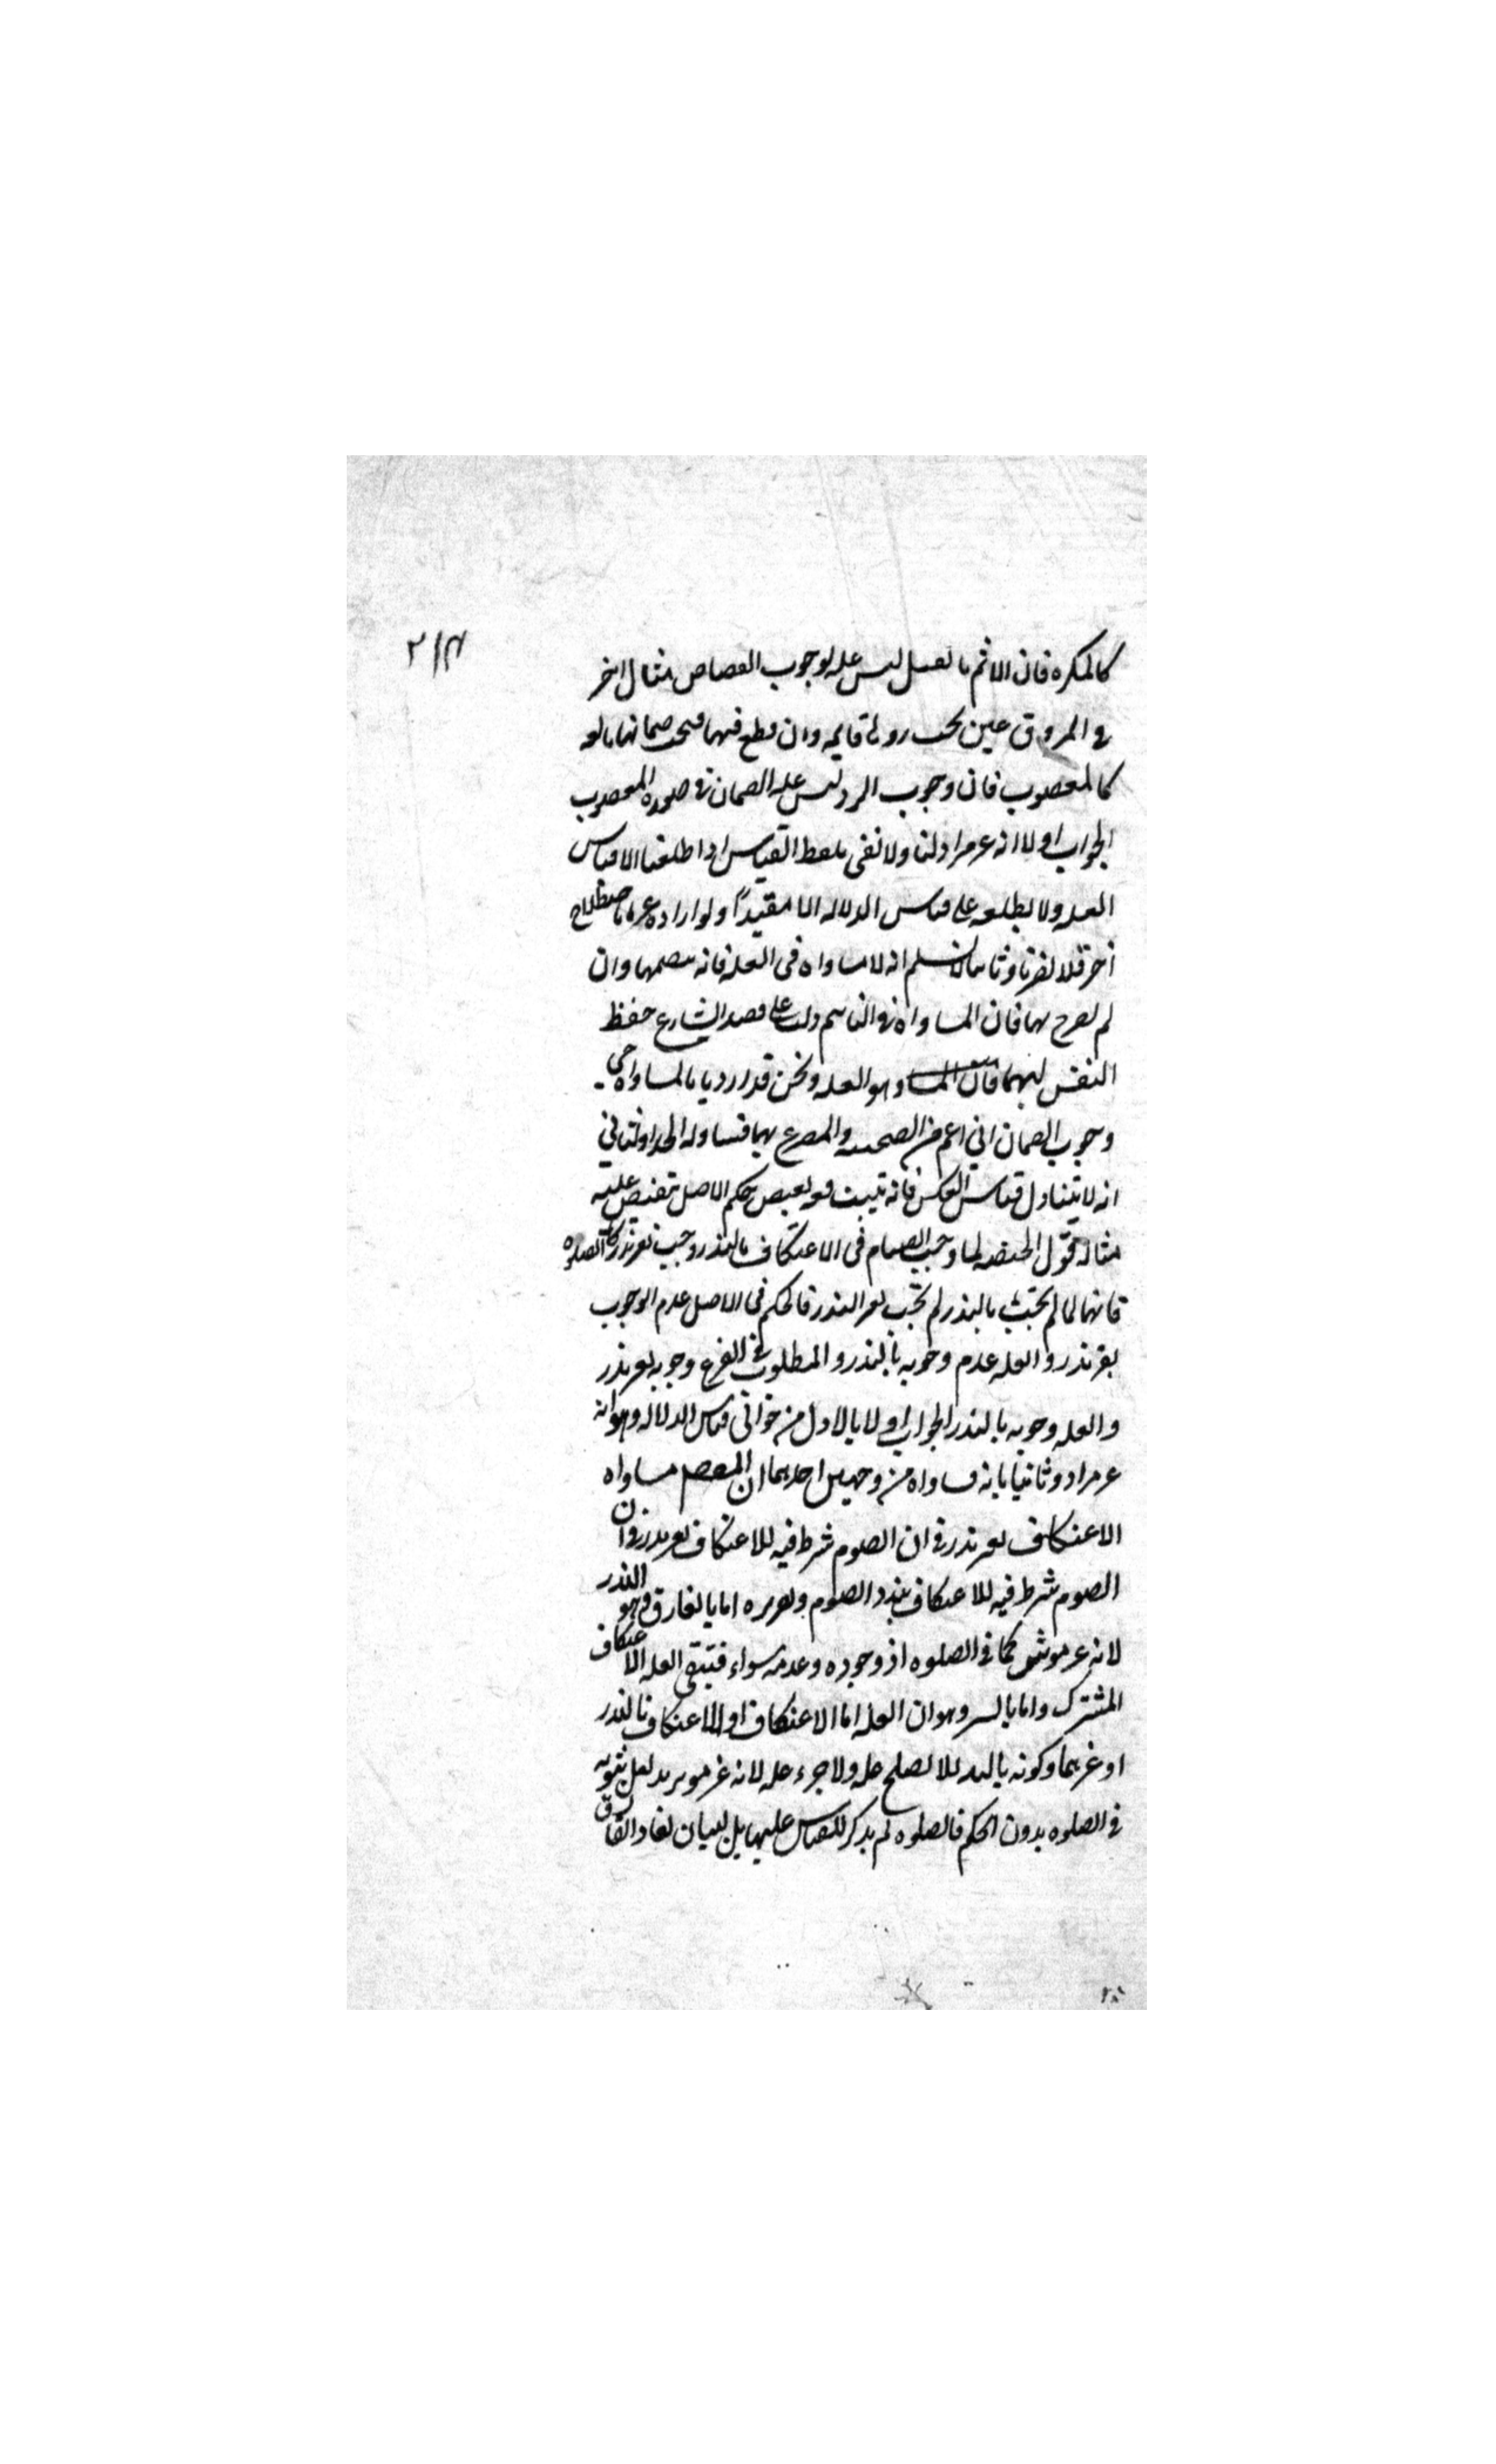 ٢١٣
كالمكره فان الاثم بالقتل ليس عله لوجوب القصاص مثال اخر
في المسروق عين يجب ردها قايمه وان قطع فيها فيجب ضمانها تالفه
كالمغصوب فان وجوب الرد ليس عله الضمان في صوره المغصوب
الجواب اولا انه غير مراد لنا ولا نعني بلفظ القياس اذا اطلقنا الا قياس
العله ولا يطلق على قياس الدلاله الا مقيدًا ولو اراده غيرنا باصطلاح
آخر فلا يضرنا وثانيا لا نسلم انه لا مساواه في العله فانه يتضمنها وان
لم يصرح بها فان المساواه في التاثيم دلت على قصد الشارع حفظ
النفس بهما وهو العله ونحن قد اردنا بالمساواه في
وجوب الضمان اعم من الضمنيه والمصرح بها فتناوله الحد الثاني
انه لا يتناول قياس العكس فانه تثبت فيه نقيض حكم الاصل بنقيض علته
مثاله قول الحنفيه لما وجب الصيام في الاعتكاف بالنذر وجب بغير نذر كالصلوه
فانها لما لم تجب بالنذر لم تجب بغير النذر فالحكم في الاصل عدم الوجوب
بغير نذر والعله عدم وجوبه بالنذر والمطلوب في الفرع وجوبه بغير نذر
والعله وجوبه بالنذر الجواب اولا بالاول من جوابي قياس الدلاله وهو انه
غير مراد وثانيا بانه مساواه من وجهين احدهما ان المقصود مساواه
الاعتكاف بغير نذر في ان الصوم شرط فيه للاعتكاف بنذر في ان
الصوم شرط فيه للاعتكاف بنذر الصوم وتقريره اما بالغا الفارق وهو النذر
لانه غير موثر كما في الصلوه اذ وجوده وعدمه سواء فتبقى العله الاعتكاف
المشترك واما بالسبر وهو ان العله اما الاعتكاف او الاعتكاف بالنذر
او غيرهما وكونه بالنذر لا يصلح عله ولا جزء عله لانه غير موثر بدليل ثبوته
في الصلوه بدون الحكم فالصلوه لم يذكر للقياس عليها بل لبيان الغاء الفارق